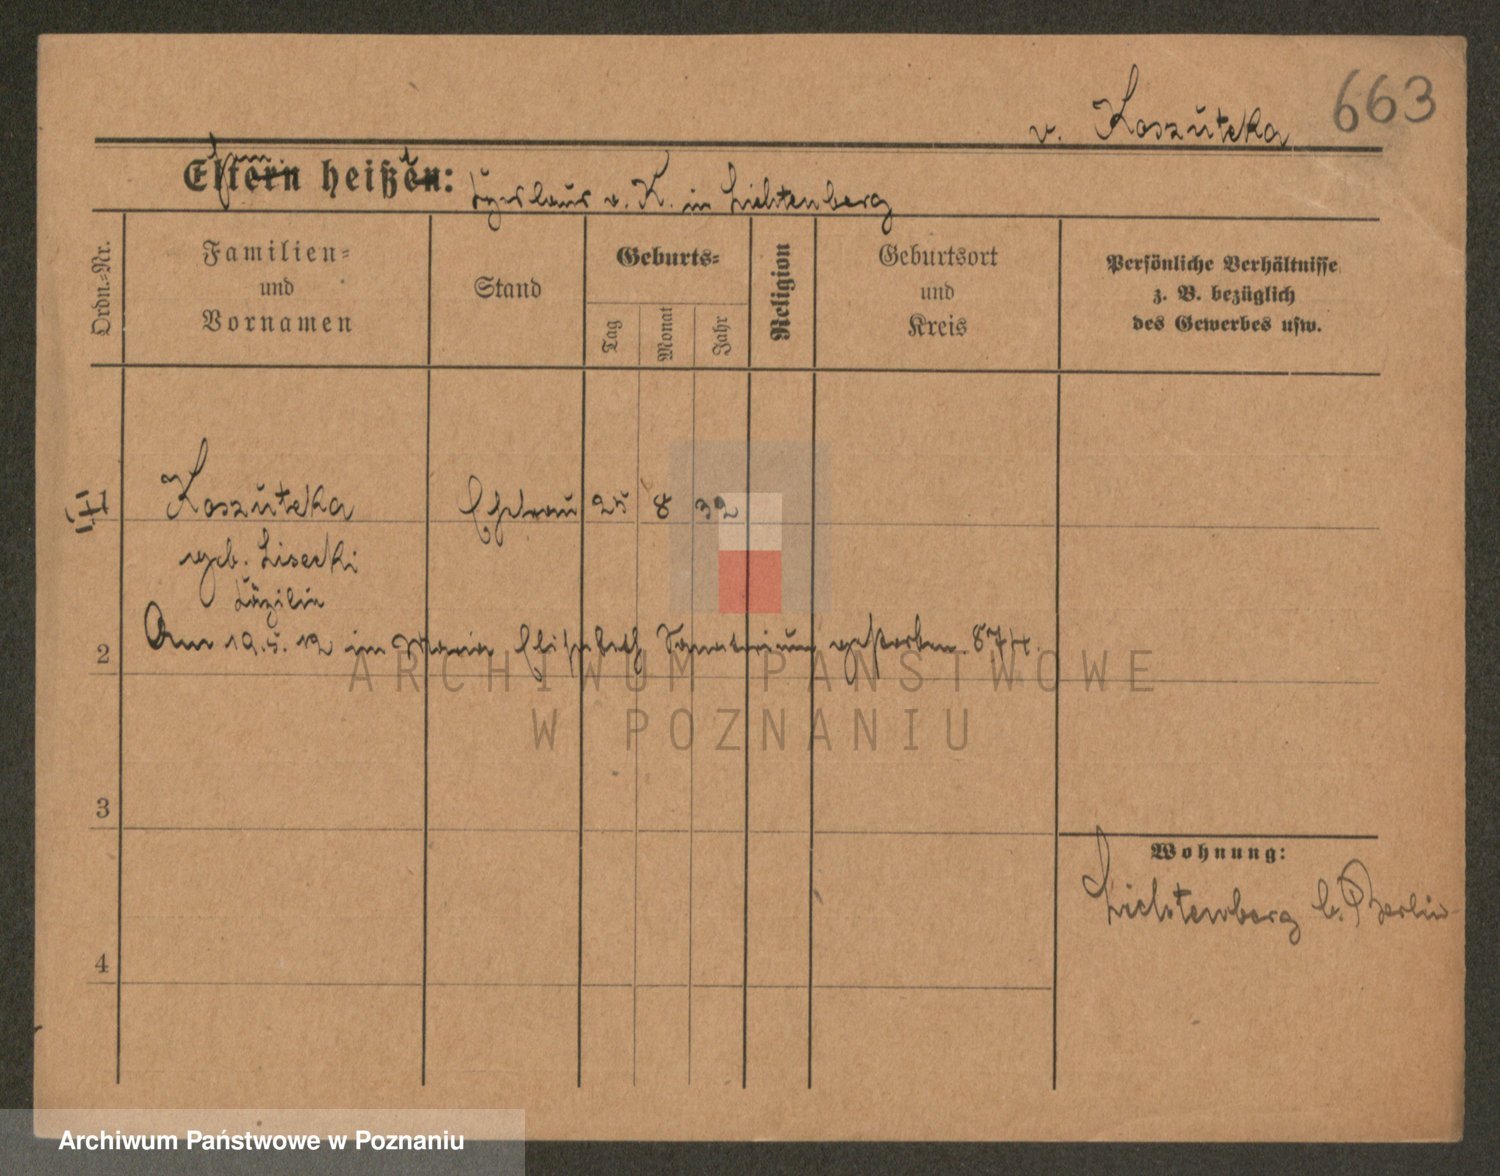 663
v. Koszutska
Eltern heißen: v. K. in Lichtenberg
Ordn.-Nr.
Familien-
und
Vornamen
Stand
Geburts-
Tag
Monat
Jahr
Religion
Geburtsort
und
Kreis
Persönliche Verhältnisse
z. B. bezüglich
des Gewerbes usw.
1
Koszutska Ehefrau 25 8 32
geb. Lisecki
Cäzilie
2
Am 19.5.12 im Maria Elisabeth Sanatorium gestorben. 874.
ARCHIWUM PAŃSTWOWE
W POZNANIU
3
Wohnung:
Lichtenberg b. Berlin
4
Archiwum Państwowe w Poznaniu